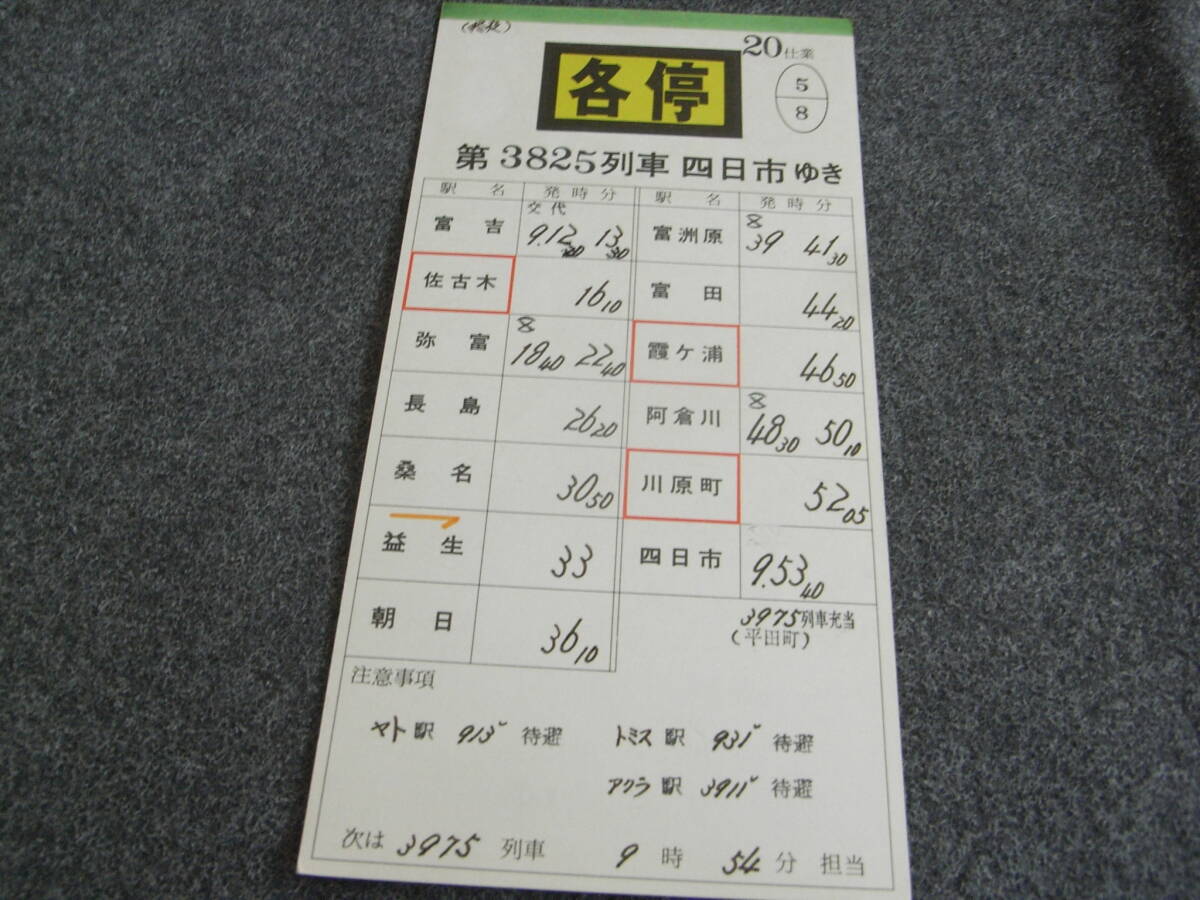 20仕業
各停
5
8
第3825列車 四日市ゆき
駅名 発時分 駅名 発時分
富吉 交代 9.12 13 富洲原 8 39 41 30
佐古木 16 10 富田 44 20
弥富 8 18 40 22 40 霞ケ浦 46 50
長島 26 20 阿倉川 8 48 30 50 10
桑名 30 50 川原町 52 05
益生 33 四日市 9.53 40
朝日 36 10 3975列車充当
(平田町)
注意事項
ヤト駅 913レ 待避 トミス駅 931レ 待避
アクラ駅 3911レ 待避
次は 3975 列車 9 時 54 分 担当